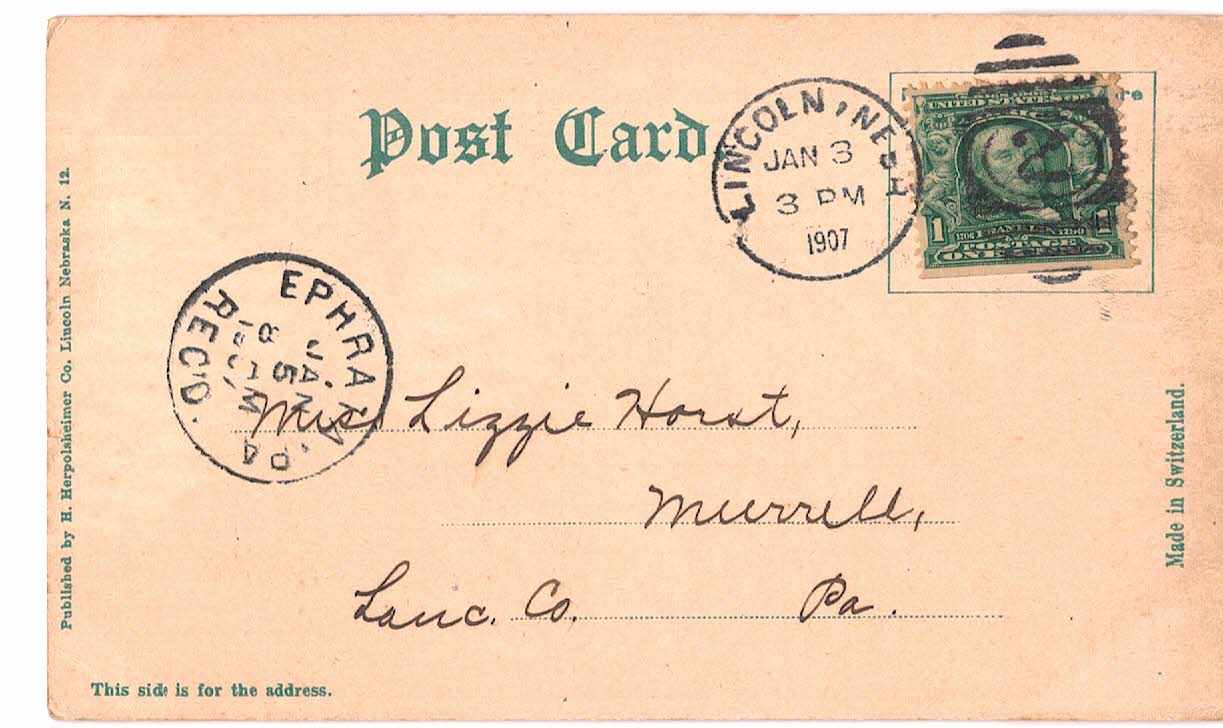 Post Card
LINCOLN, NEBR
JAN 3
3 PM
1907
2
UNITED STATES OF
1
1
1706 FRANKLIN 1790
POSTAGE
ONE
EPHRATA, PA.
JAN
5
8
REC'D.
Miss Lizzie Horst,
Murrell,
Lanc. Co. Pa.
Published by H. Herpolsheimer Co. Lincoln Nebraska N. 12.
Made in Switzerland.
This side is for the address.